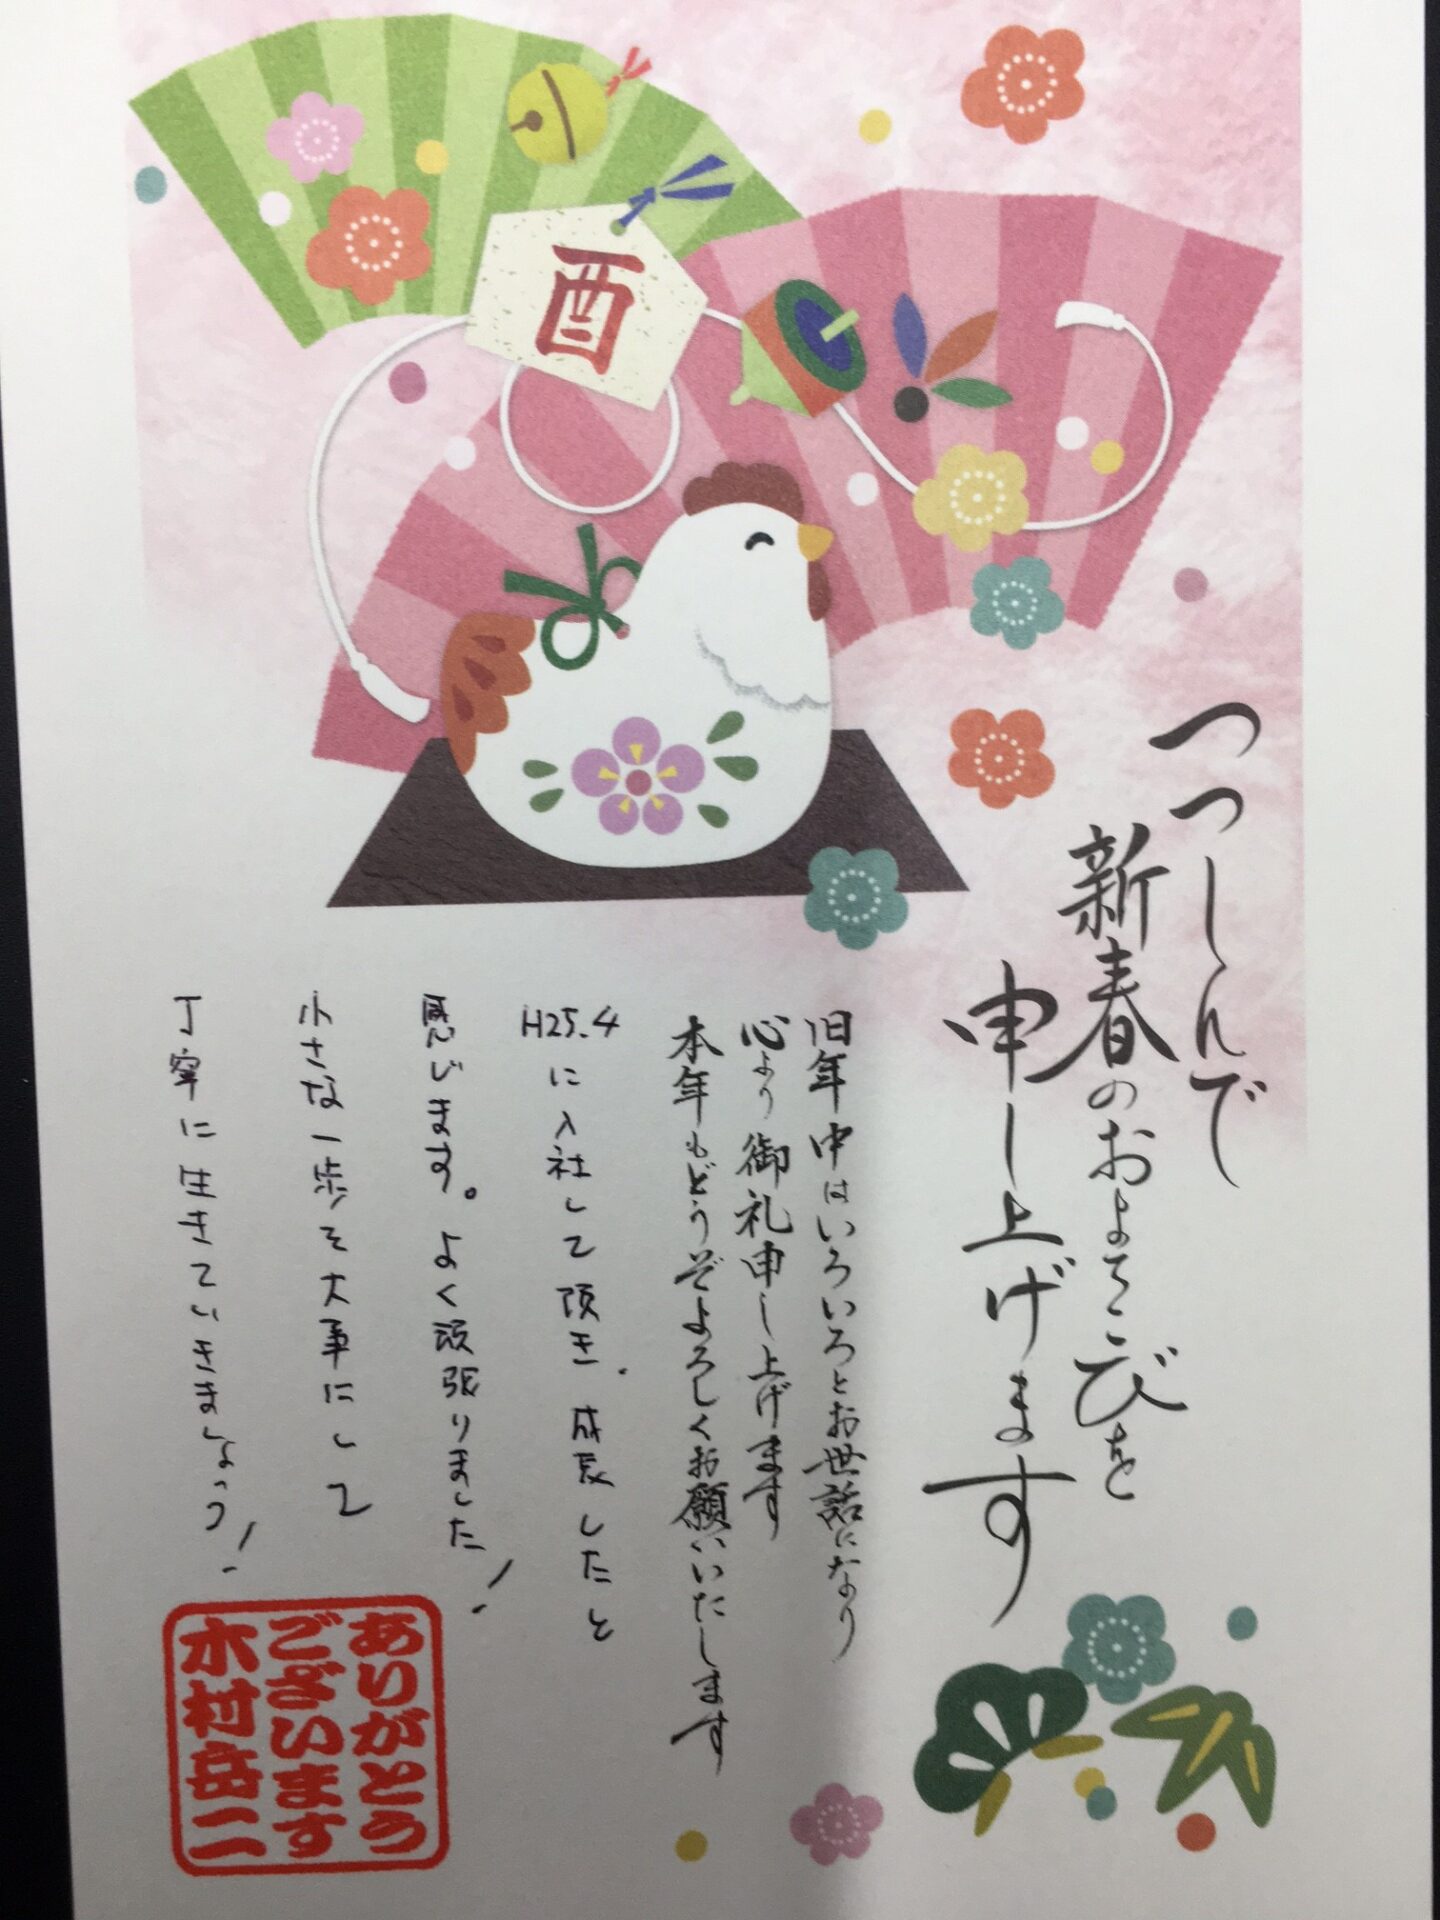 酉
つつしんで
新春のおよろこびを
申し上げます
旧年中はいろいろとお世話になり
心より御礼申し上げます
本年もどうぞよろしくお願いいたします
H25.4に入社して頂き、成長したと
感じます。よく頑張りました!
小さな一歩を大事にして
丁寧に生きていきましょう!
ありがとう
ございます
木村岳二